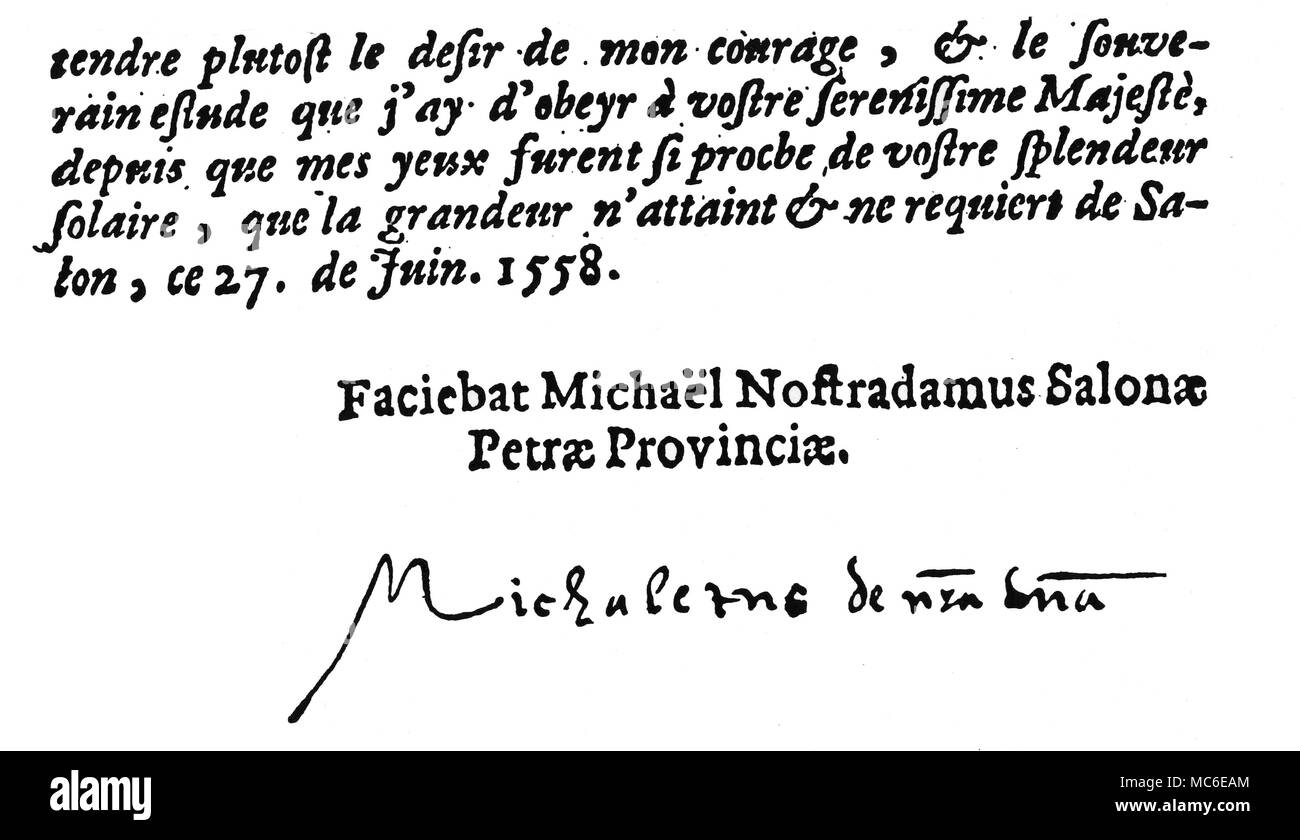 tendre plutoſt le deſir de mon courage, & le ſouve-
rain eſtude que j'ay d'obeyr à voſtre ſereniſſime Majeſtè,
depuis que mes yeux furent ſi proche de voſtre ſplendeur
ſolaire, que la grandeur n'attaint & ne requiert de Sa-
lon, ce 27. de Juin. 1558.
Faciebat Michaël Noſtradamus Salonæ
Petræ Provinciæ.
Michaletus de nra dna
alamy
Image ID: MC6EAM
www.alamy.com